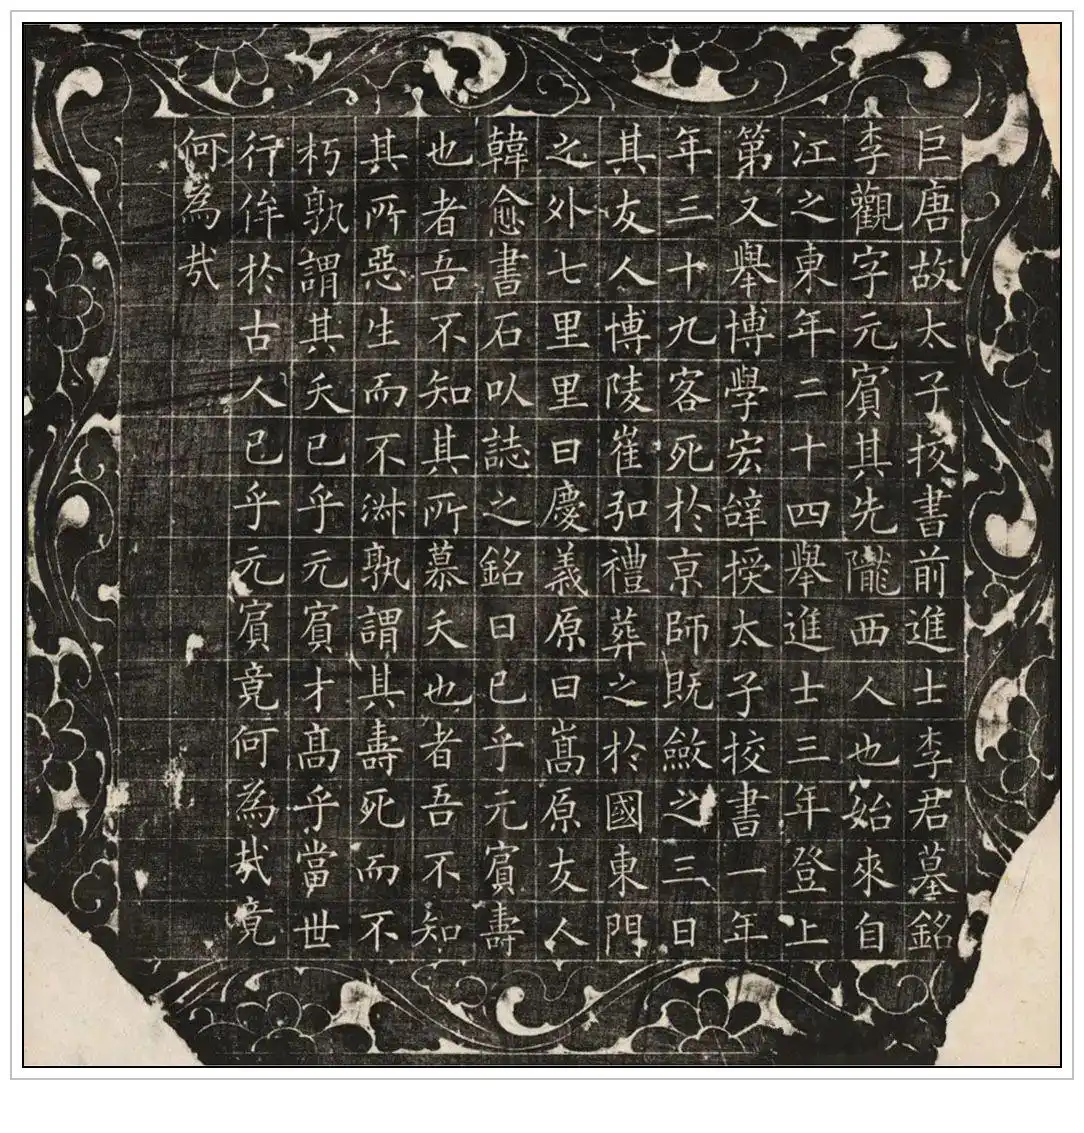 巨唐故太子挍書前進士李君墓銘
李觀字元賔其先隴西人也始來自
江之東年二十四舉進士三年登上
第又舉博學宏辝授太子挍書一年
年三十九客死於亰師既斂之三日
其友人博陵崔弘禮葬之於國東門
之外七里里曰慶義原曰嵩原友人
韓愈書石以誌之銘曰已乎元賔壽
也者吾不知其所慕夭也者吾不知
其所惡生而不淑孰謂其壽死而不
朽孰謂其夭已乎元賔才髙乎當世
行侔於古人已乎元賔竟何為哉竟
何為哉